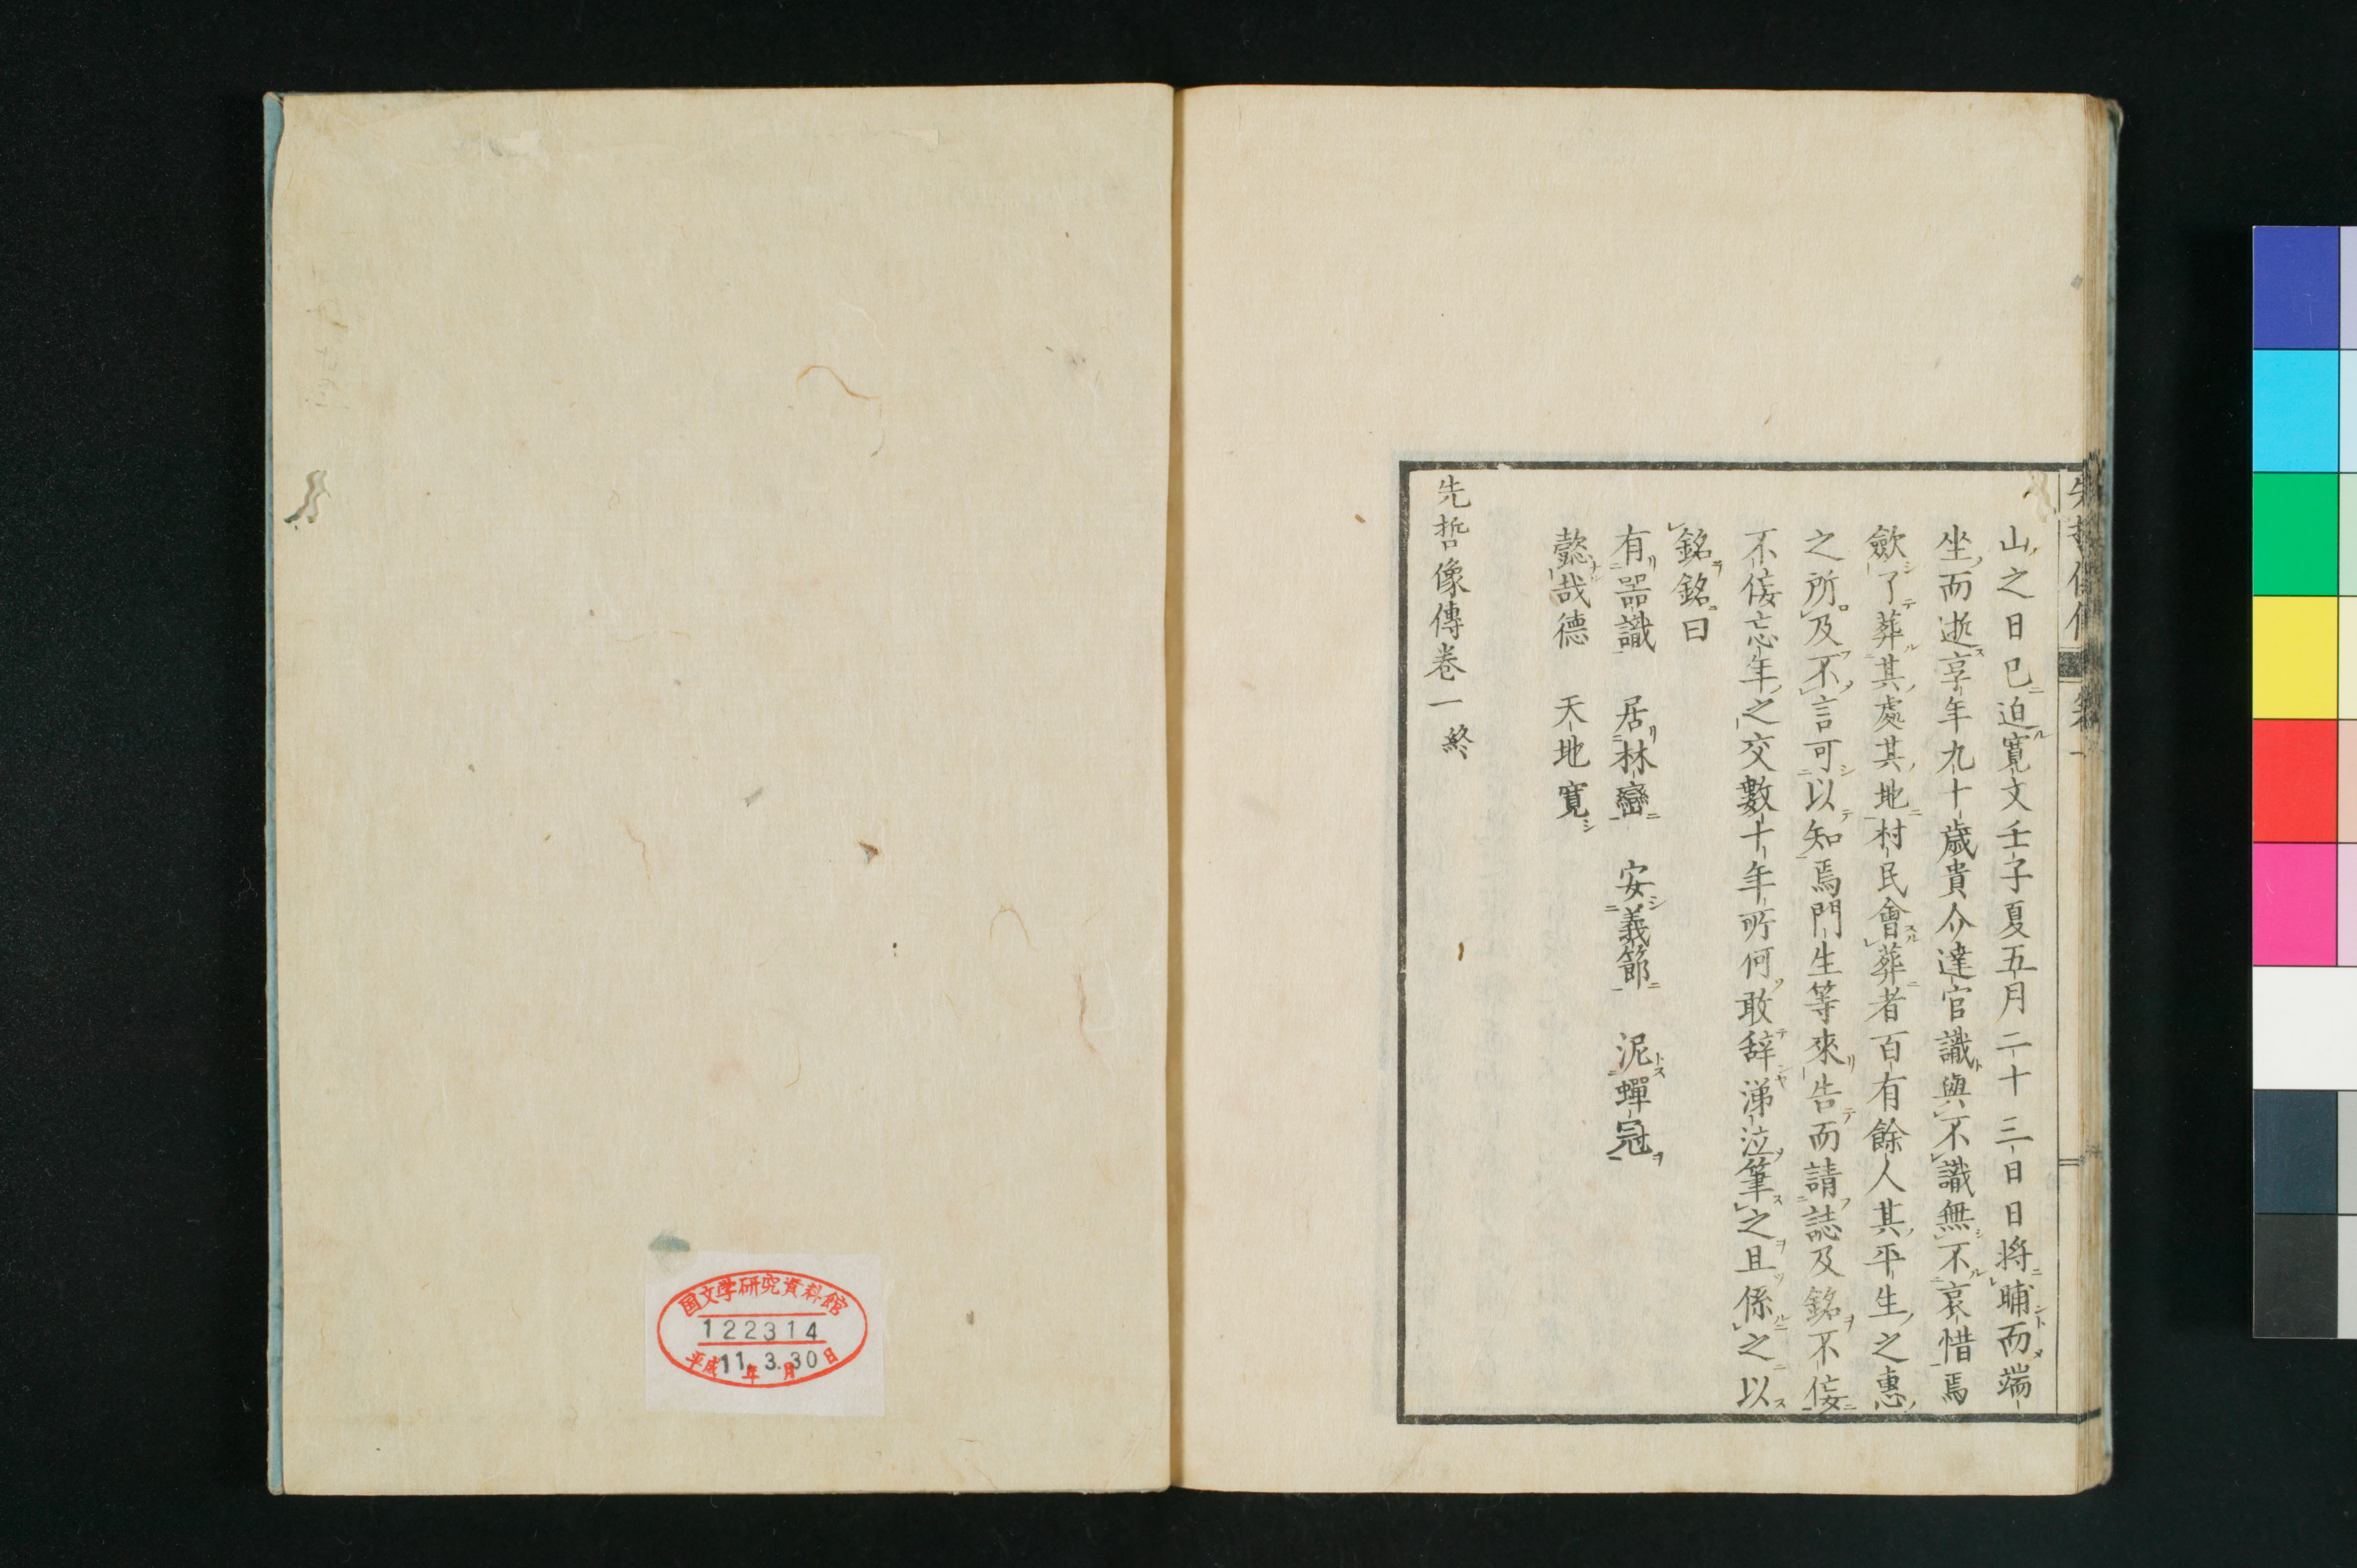 山之日已迫寛文壬子夏五月二十三日日将晡而端
坐而逝享年九十歳貴介達官識與不識無不哀惜焉
歛了葬其處其地村民會葬者百有餘人其平生之惠
之所及不言可以知焉門生等來告而請誌及銘不侫
不侫忘年之交數十年所何敢辞涕泣筆之且係之以
銘銘曰
有噐識　居林巒　安義節　泥蟬冠
懿哉德　天地寛
先哲像傳卷一終
国文学研究資料館
122314
平成11年3.月30日